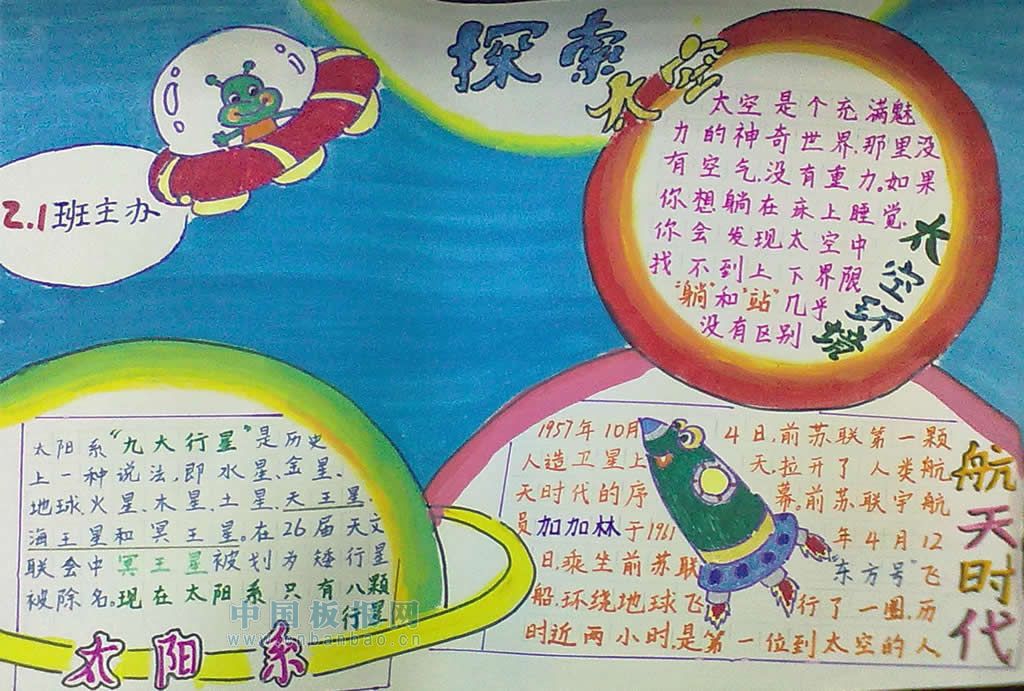 探索太空
2.1班主办
太空是个充满魅
力的神奇世界.那里没
有空气.没有重力。如果
你想躺在床上睡觉.
你会发现太空中
找不到上下界限
"躺"和"站"几乎
没有区别
太空环境
太阳系"九大行星"是历史
上一种说法,即水星、金星、
地球火星、木星、土星、天王星、
海王星和冥王星。在26届天文
联会中冥王星被划为矮行星
被除名.现在太阳系只有八颗
行星
太阳系
1957年10月4日.前苏联第一颗
人造卫星上天.拉开了人类航
天时代的序幕.前苏联宇航
员加加林于1961年4月12
日.乘坐前苏联"东方号"飞
船.环绕地球飞行了一圈.历
时近两小时.是第一位到太空的人
航天时代
中国板报网
www.cnbanbao.cn